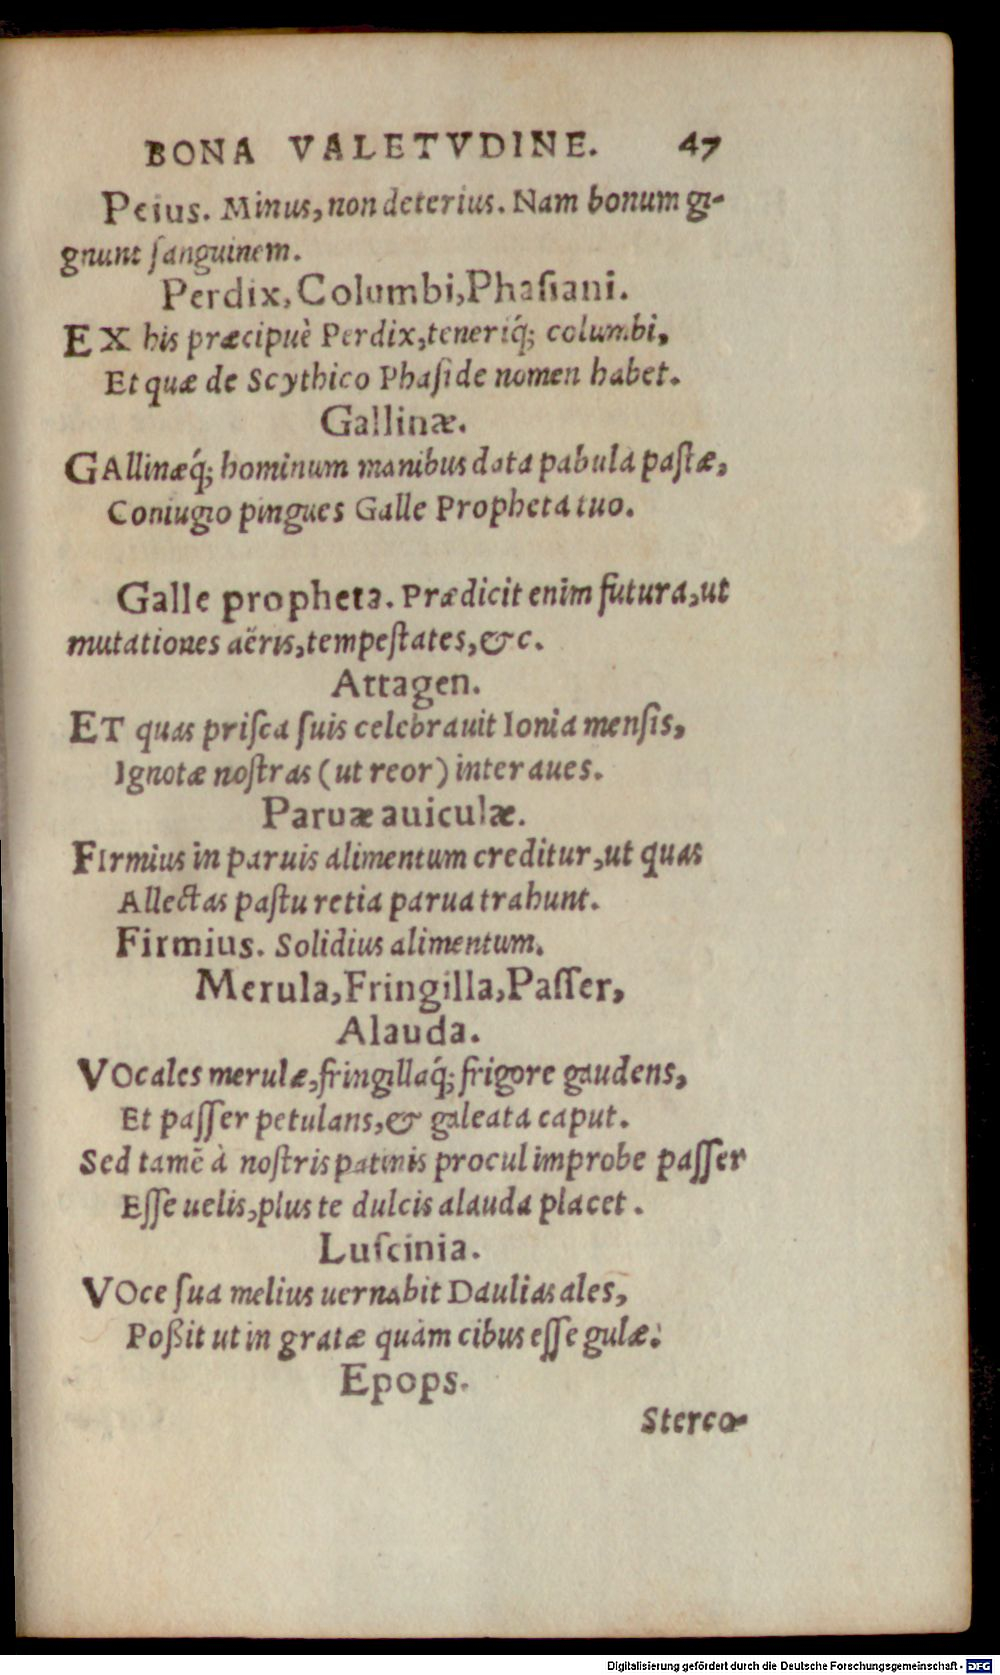 BONA VALETVDINE. 47
Peius. Minus, non deterius. Nam bonum gi-
gnunt ſanguinem.
Perdix, Columbi, Phaſiani.
EX his præcipuè Perdix, teneriq́; columbi,
Et quæ de Scythico Phaſide nomen habet.
Gallinæ.
GAllinæq́; hominum manibus data pabula paſtæ,
Coniugio pingues Galle Propheta tuo.
Galle propheta. Prædicit enim futura, ut
mutationes aëris, tempeſtates, &c.
Attagen.
ET quas priſca ſuis celebrauit Ionia menſis,
Ignotæ noſtras (ut reor) inter aues.
Paruæ auiculæ.
FIrmius in paruis alimentum creditur, ut quas
Allectas paſtu retia parua trahunt.
Firmius. Solidius alimentum.
Merula, Fringilla, Paſſer,
Alauda.
VOcales merulæ, fringillaq́; frigore gaudens,
Et paſſer petulans, & galeata caput.
Sed tamē à noſtris patinis procul improbe paſſer
Eſſe uelis, plus te dulcis alauda placet.
Luſcinia.
VOce ſua melius uernabit Daulias ales,
Poßit ut in gratæ quàm cibus eſſe gulæ.
Epops.
Sterco-
Digitalisierung gefördert durch die Deutsche Forschungsgemeinschaft - DFG